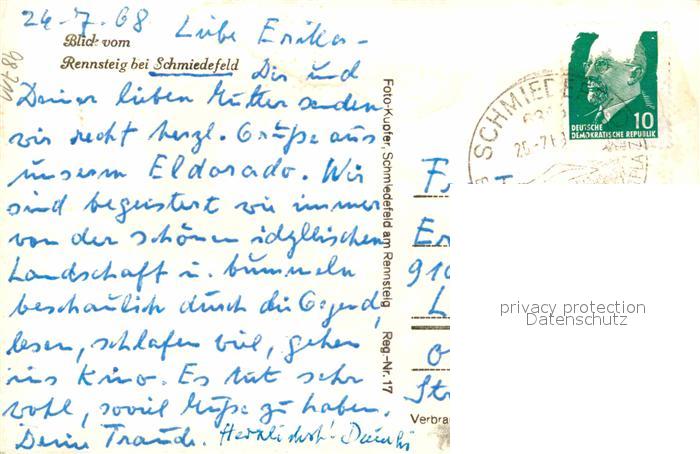 24-7.68 Liebe Erika -
Blick vom
Rennsteig bei Schmiedefeld
Dir und
Deiner lieben Mutter senden
wir recht herzl. Grüße aus
unserm Eldorado. Wir
sind begeistert wie immer
von der schönen idyllischen
Landschaft u. bummeln
beschaulich durch die Gegend,
lesen, schlafen viel, gehen
ins Kino. Es tut sehr
wohl, soviel Muße zu haben.
Deine Traude. Herzlichst!
Foto-Kupfer, Schmiedefeld am Rennsteig Reg.-Nr. 17
SCHMIEDEFE
10
DEUTSCHE
DEMOKRATISCHE REPUBLIK
F
Er
910
L
O
Str
Verbra
privacy protection
Datenschutz